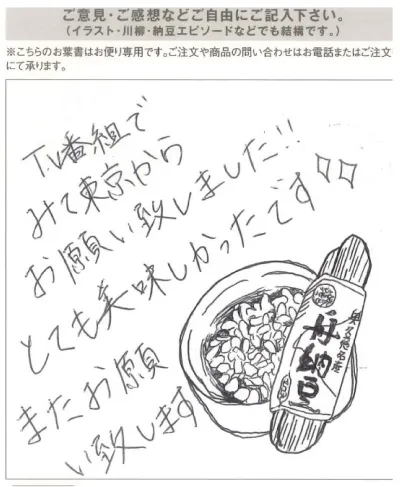 ご意見・ご感想などご自由にご記入下さい。
（イラスト・川柳・納豆エピソードなどでも結構です。）
※こちらのお葉書はお便り専用です。ご注文や商品の問い合わせはお電話またはご注文
にて承ります。
T.V番組で
みて東京から
お願い致しました!!
とても美味しかったです
またお願
い致します
奥久慈名産
舟納豆